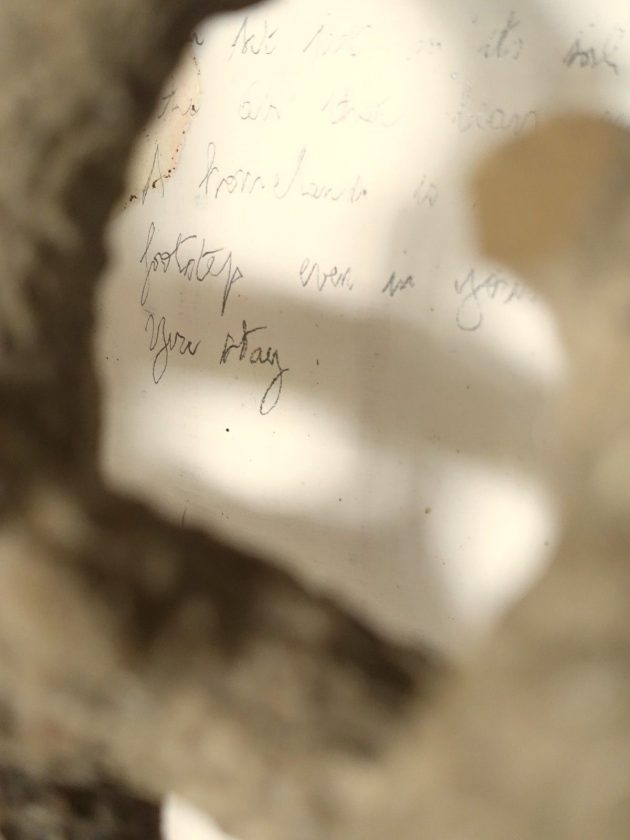 set foot on its soil
the air that
A homeland is
footstep even in your
You stay.